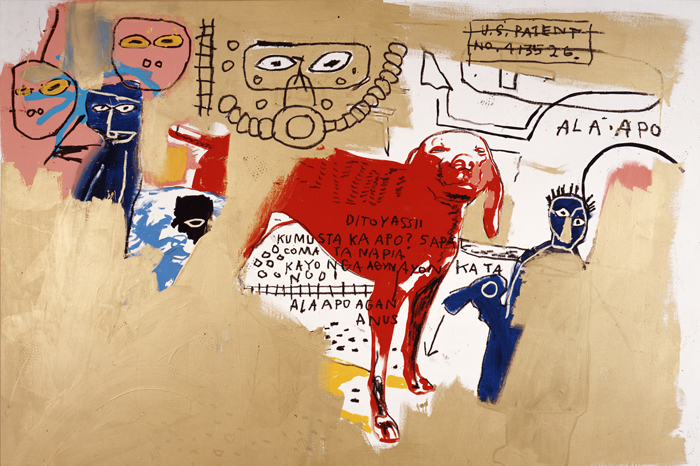 U.S. PATENT
NO. 413526.
ALA-APO
DITOYASSII
KUMUSTA KA APO? SAPA
COMA TA NAPIA.
KAYO NGA KA TA
ALAAPO AGAN
ANUS